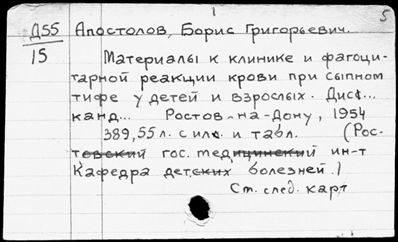 1 5
Д55 Апостолов, Борис Григорьевич.
15 Материалы к клинике и фагоци-
тарной реакции крови при сыпном
тифе у детей и взрослых. Дисс...
канд... Ростов-на-Дону, 1954
389,55 л. с илл. и табл. (Рос-
товский гос. медицинский ин-т
Кафедра детских болезней.)
Ст. след. карт